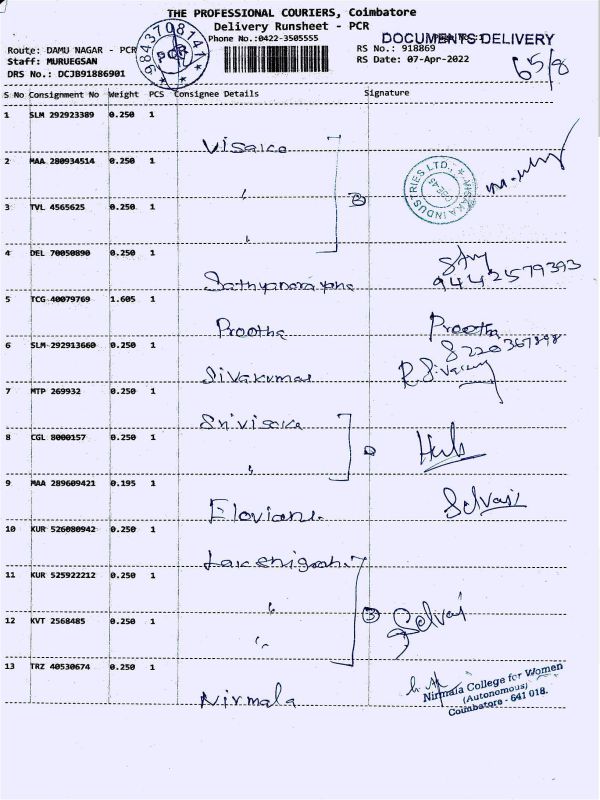 THE PROFESSIONAL COURIERS, Coimbatore
Delivery Runsheet - PCR
Phone No.:0422-3505555
DOCUMENTS DELIVERY
9843708141
PCR
Route: DAMU NAGAR - PCR
Staff: MURUEGSAN
DRS No.: DCJB91886901
RS No.: 918869
RS Date: 07-Apr-2022
65/8
S No Consignment No Weight PCS Consignee Details Signature
1 SLM 292923389 0.250 1 Visaka
2 MAA 280934514 0.250 1 "
3 TVL 4565625 0.250 1 "
3
VISAKA INDUSTRIES LTD.,
4 DEL 70050890 0.250 1 Sathyanarayana
9442579393
5 TCG 40079769 1.605 1 Prootha Prootha
8220367898
6 SLM 292913660 0.250 1 Sivakumar R. Sivakumar
7 MTP 269932 0.250 1 Srivisaka
8 CGL 8000157 0.250 1 "
9 MAA 289609421 0.195 1 Eloviani Selvaji
10 KUR 526080942 0.250 1
11 KUR 525922212 0.250 1 "
12 KVT 2568485 0.250 1 "
3 Selvaj
13 TRZ 40530674 0.250 1 Nirmala
Nirmala College for Women
(Autonomous)
Coimbatore - 641 018.